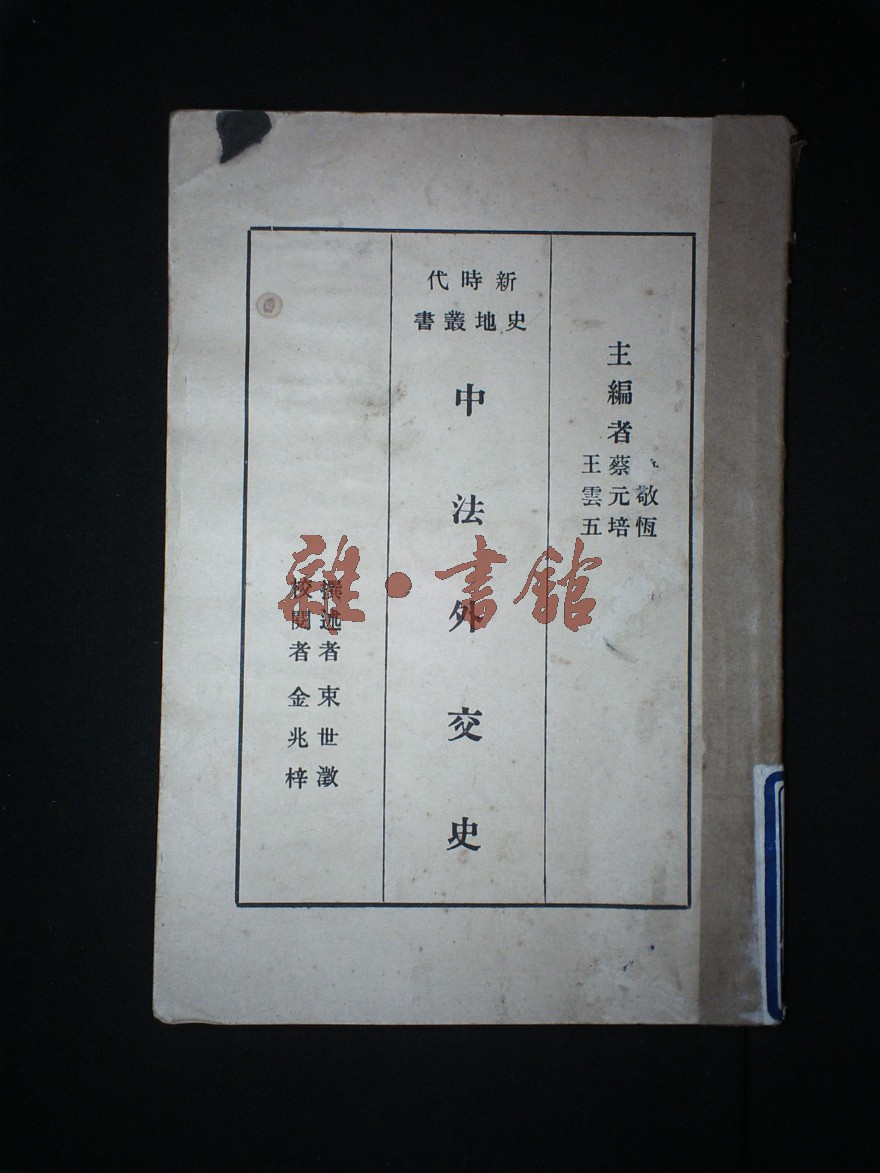 主編者
敬恆
蔡元培
王雲五
新時代
史地叢書
中法外交史
撰述者 束世澂
校閱者 金兆梓
雜·書館